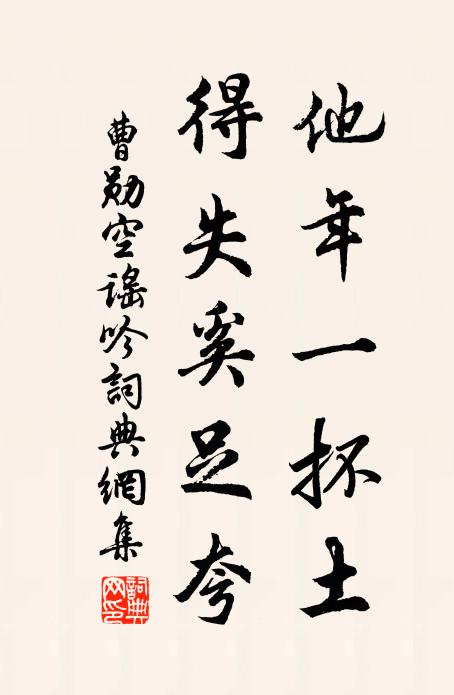 他年一抔土
得失奚足夸
曹勋空謠吟詞典網集
詞典网印